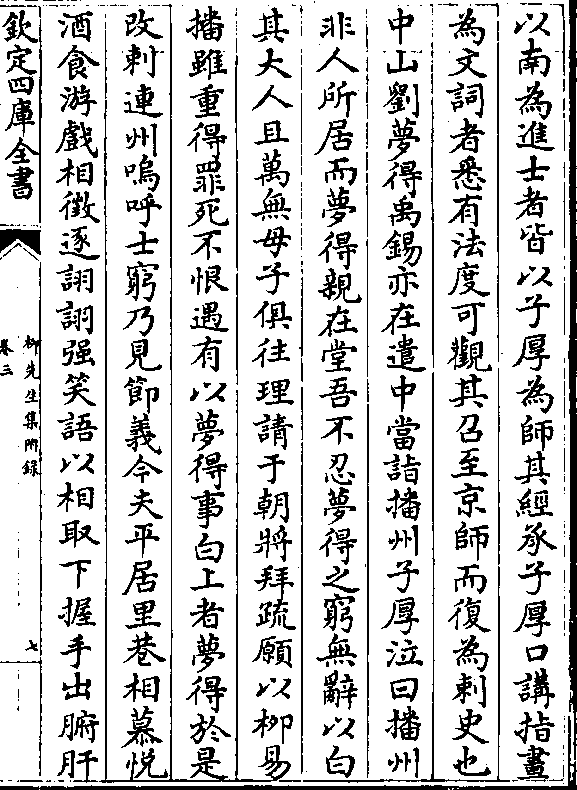 以南為進士者皆以子厚為師其經承子厚口講指畫
為文詞者悉有法度可觀其召至京師而復為刺史也
中山劉夢得禹錫亦在遣中當詣播州子厚泣曰播州
非人所居而夢得親在堂吾不忍夢得之窮無辭以白
其大人且萬無母子俱往理請于朝將拜疏願以柳易
播雖重得罪死不恨遇有以夢得事白上者夢得於是
改刺連州嗚呼士窮乃見節義今夫平居里巷相慕悦
酒食游戲相徵逐詡詡强笑語以相取下握手出腑肝
欽定四庫全書
柳先生集附錄
卷三
七